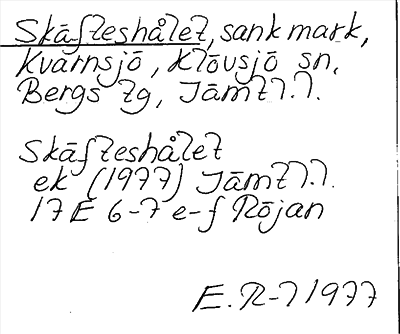 Skäfteshålet, sank mark,
Kvarnsjö, Klövsjö sn,
Bergs tg, Jämtl.l.
Skäfteshålet
ek (1977) Jämtl.l.
17E 6-7 e-f Röjan
E.R-l 1977